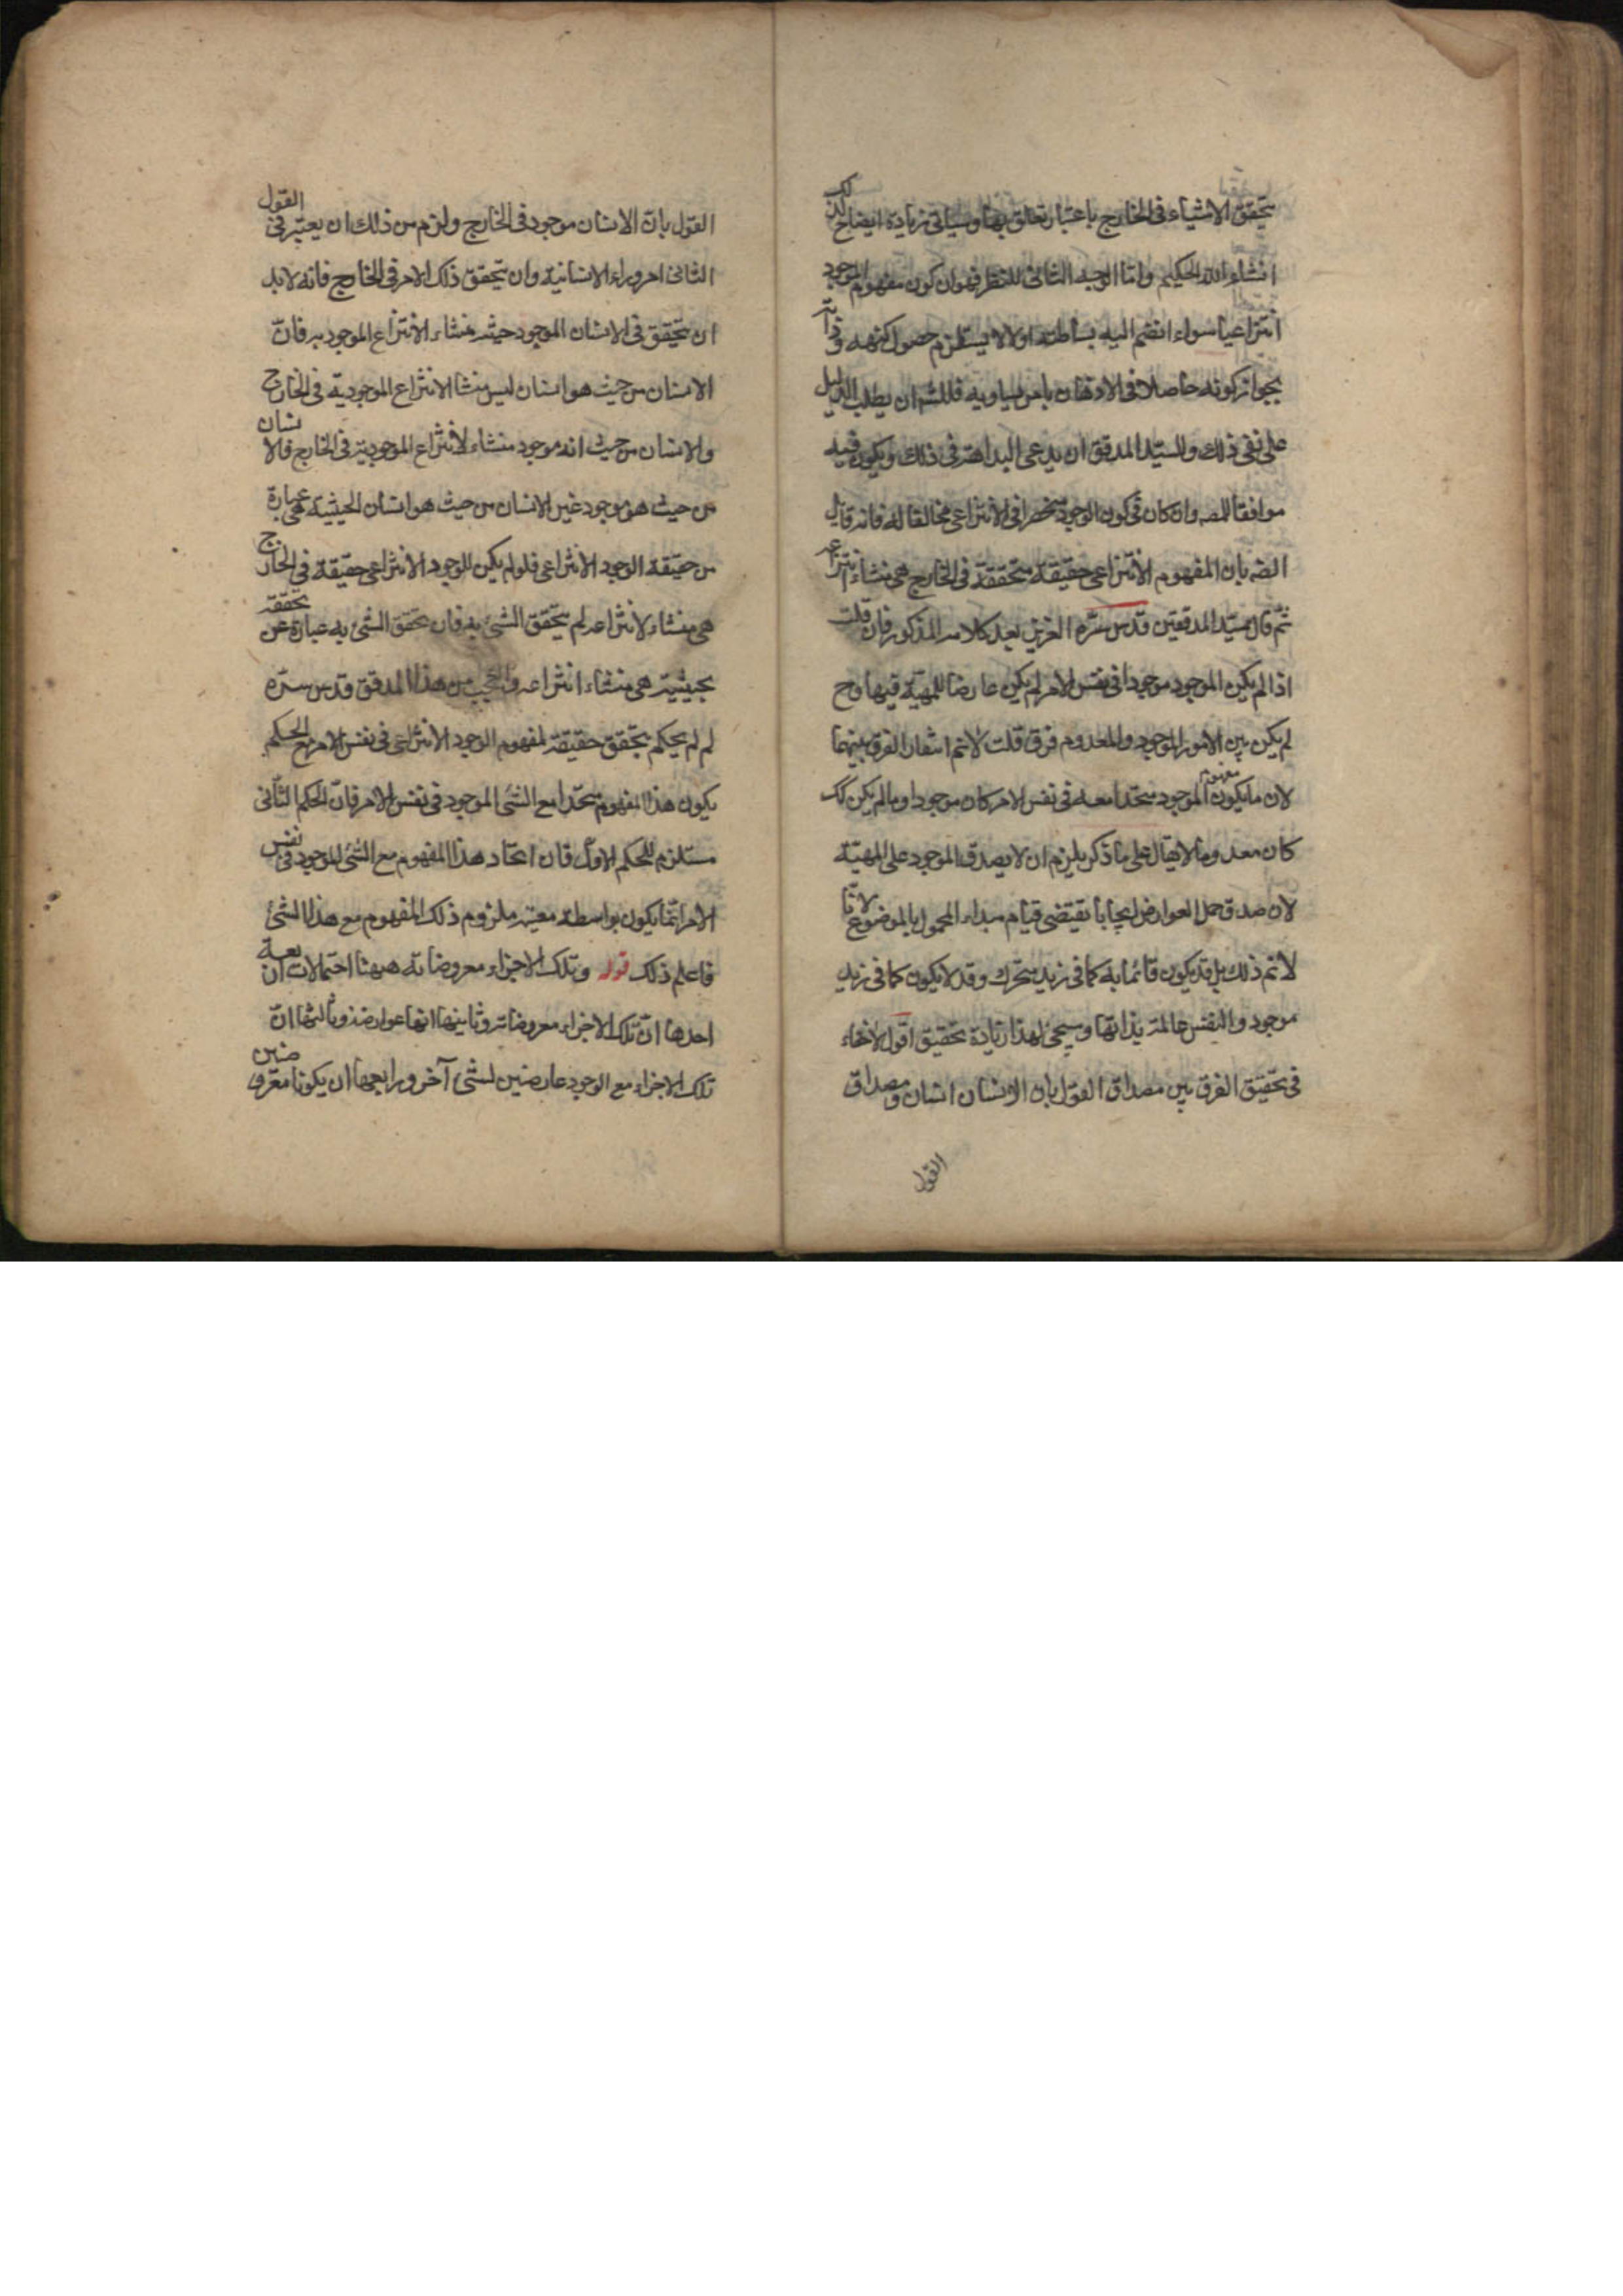 تحقق الاشياء فى الخارج باعتبار تعلق بها وسياتى زيادة ايضاح لذلك
انشاء الله الحكيم واما الوجه الثانى للنظر فهو ان كون مفهوم الموجود
انتزاعيا سواء انضم اليه بساطته اولا لا يستلزم حصول كنهه وذاته
بجواز كونه حاصلا فى الاذهان بامر يساويه فللشه ان يطلب الدليل
على نفى ذلك وللسيد المدقق ان يدعى البداهة فى ذلك ويكون فيه
موافقا للمصه وان كان فى كون الوجود منحصرا فى الانتزاعى مخالفا له فانه قايل
ايضه بان المفهوم الانتزاعى حقيقة متحققة فى الخارج هى منشاء انتزاعه
ثم قال سيد المدققين قدس سره العزيز بعد كلامه المذكور فان قلت
اذا لم يكن الموجود موجودا فى نفس الامر لم يكن عارضا للمهية فيها وح
لم يكن بين الامور الموجود والمعدوم فرق قلت لانم انتفاء الفرق بينهما
لان ما يكون مفهوم الموجود متحدا معه فى نفس الامر كان موجودا وما لم يكن كك
كان معدوما لا يقال على ما ذكر يلزم ان لا يصدق الموجود على المهية
لان صدق حمل العوارض ايجابا يقتضى قيام مبداء المحمول بالموضوع لانا
لانم ذلك بل قد يكون قائما به كما فى زيد متحرك وقد لا يكون كما فى زيد
موجود والنفس عالمة بذاتها وسيجئ لهذا زيادة تحقيق اقول لاخفاء
فى تحقيق الفرق بين مصداق القول بان الانسان انسان ومصداق
القول
القول بان الانسان موجود فى الخارج ولزم من ذلك ان يعتبر فى القول
الثانى امر وراء الانسانية وان تحقق ذلك الامر فى الخارج فانه لابد
ان تحقق فى الانسان الموجود حيثية منشاء الانتزاع الموجود به فان
الانسان من حيث هو انسان ليس منشا الانتزاع الموجودية فى الخارج
والانسان من حيث انه موجود منشاء لانتزاع الموجودية فى الخارج فالانسان
من حيث هو موجود غير الانسان من حيث هو انسان الحيثية هى عبارة
من حقيقة الوجود الانتزاعى فلو لم يكن للوجود الانتزاعى حقيقة فى الخارج
هى منشاء لانتزاعه لم يتحقق الشئ به فان تحقق الشئ به عبارة عن تحققه
بحيثية هى منشاء انتزاعه والعجب من هذا المدقق قدس سره
لم لم يحكم بتحقق حقيقة لمفهوم الوجود الانتزاعى فى نفس الامر مع الحكم
يكون هذا المفهوم متحدا مع الشئ الموجود فى نفس الامر فان الحكم الثانى
مستلزم للحكم الاول فان اتحاد هذا المفهوم مع الشئ الموجود فى نفس
الامر انما يكون بواسطة معية ملزوم ذلك المفهوم مع هذا الشئ
فاعلم ذلك قوله وتلك الاجزاء معروضاته هيهنا احتمالات اربعة
احدها ان تلك الاجزاء معروضاته وثانيها انها عوارضه وثالثها ان
تلك الاجزاء مع الوجود عارضين لشئ آخر ورابعها ان يكونا معروضين